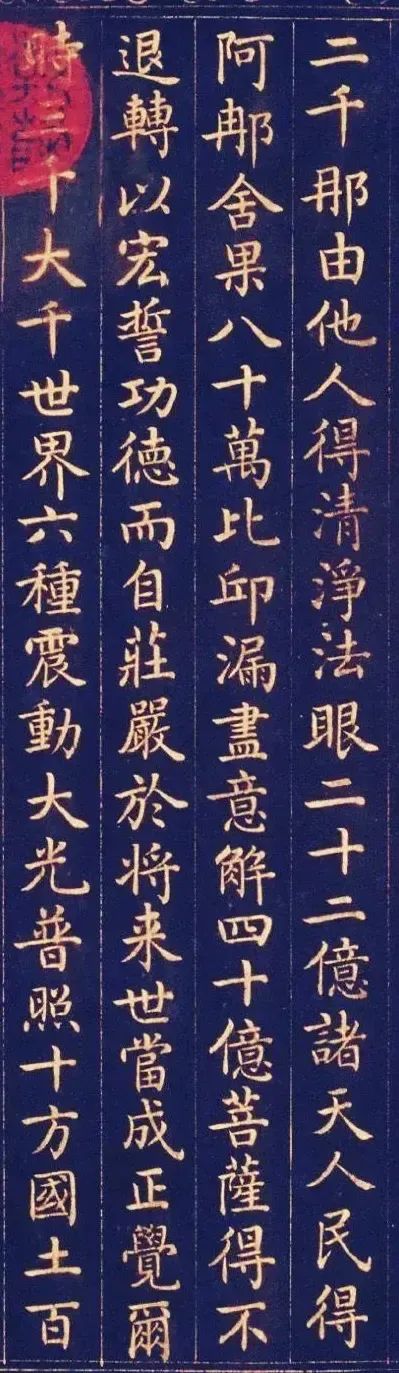 二千那由他人得清淨法眼二十二億諸天人民得
阿那舍果八十萬比邱漏盡意解四十億菩薩得不
退轉以宏誓功德而自莊嚴於将来世當成正覺爾
時三千大千世界六種震動大光普照十方國土百